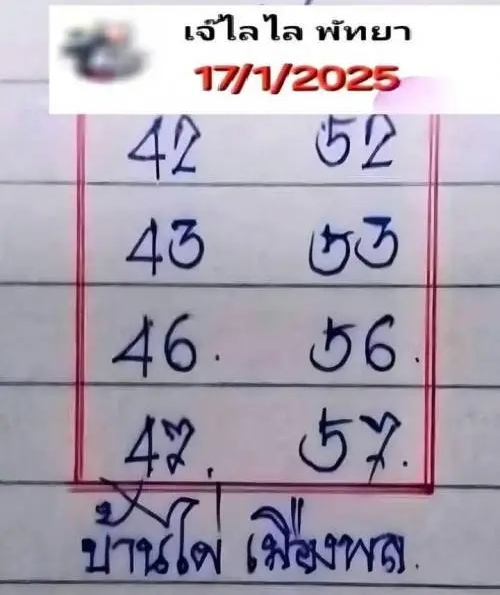 เจ๊ไลไล พัทยา
17/1/2025
42 52
43 53
46. 56.
47. 57.
บ้านไผ่ เมืองพล.